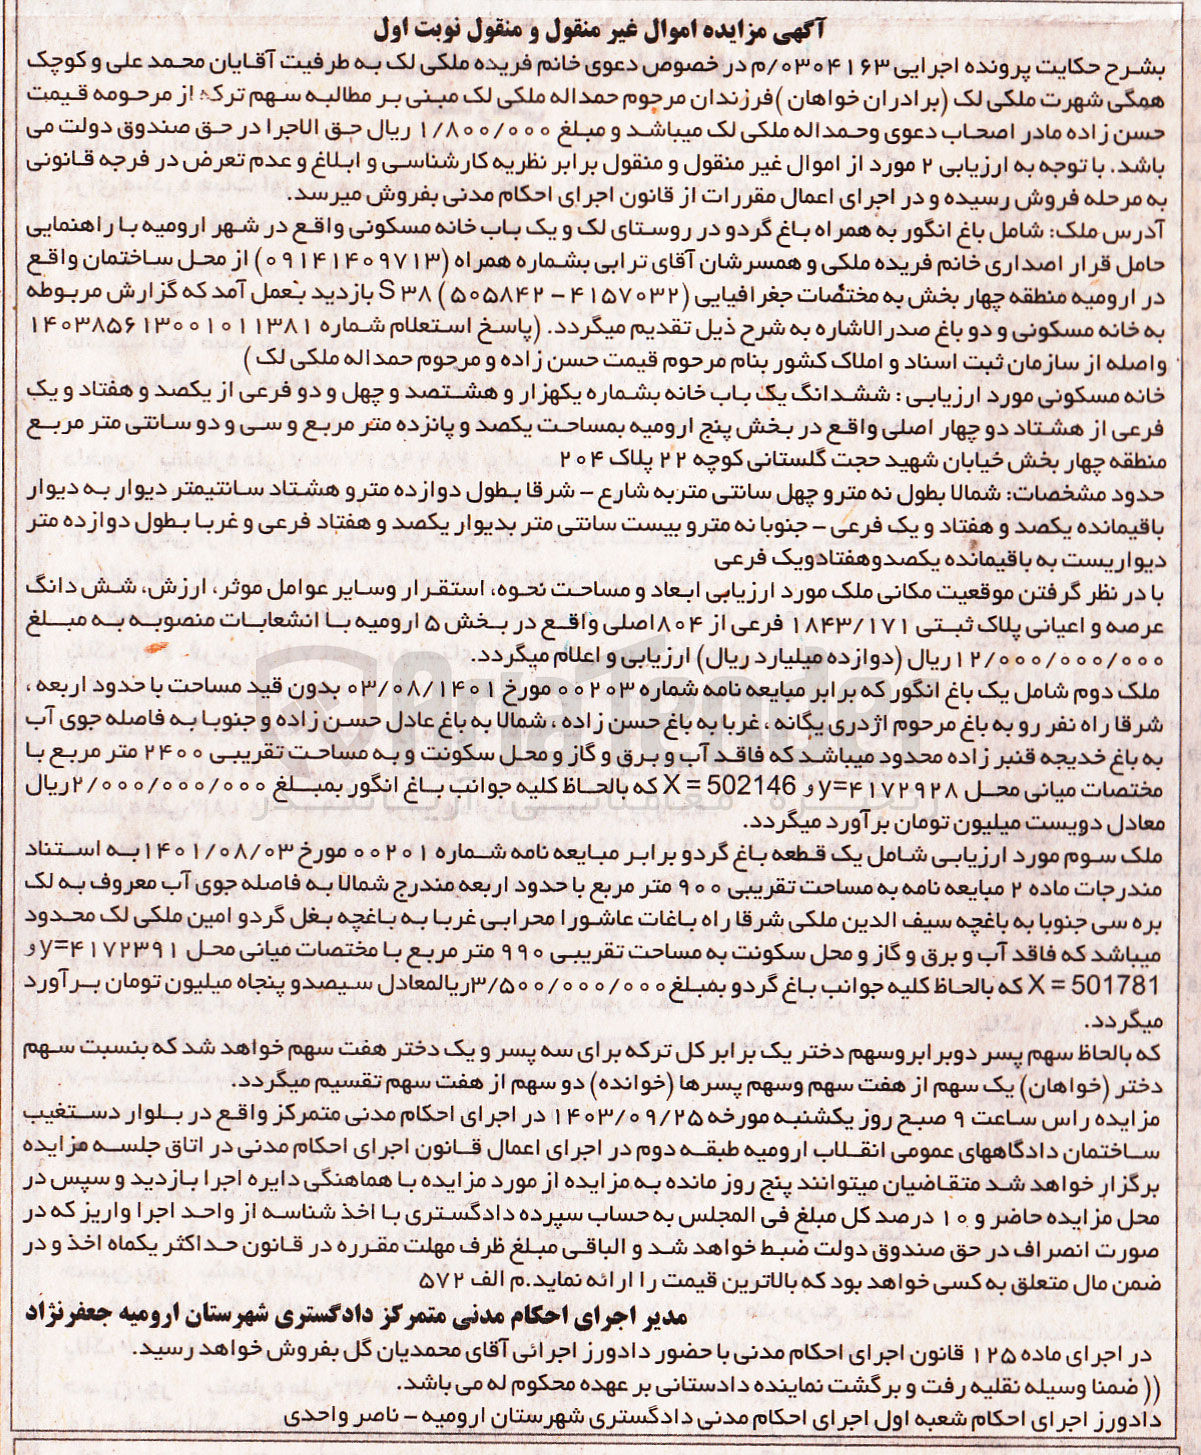 آگهی مزایده اموال غیر منقول و منقول نوبت اول
بشرح حکایت پرونده اجرایی ۰۳۰۴۱۶۳/م در خصوص دعوی خانم فریده ملکی لک به طرفیت آقایان محمد علی و کوچک
همگی شهرت ملکی لک (برادران خواهان )فرزندان مرحوم حمداله ملکی لک مبنی بر مطالبه سهم ترکه از مرحومه قیمت
حسن زاده مادر اصحاب دعوی وحمداله ملکی لک میباشد و مبلغ ۱/۸۰۰/۰۰۰ ریال حق الاجرا در حق صندوق دولت می
باشد. با توجه به ارزیابی ۲ مورد از اموال غیر منقول و منقول برابر نظریه کارشناسی و ابلاغ و عدم تعرض در فرجه قانونی
به مرحله فروش رسیده و در اجرای اعمال مقررات از قانون اجرای احکام مدنی بفروش میرسد.
آدرس ملک: شامل باغ انگور به همراه باغ گردو در روستای لک و یک باب خانه مسکونی واقع در شهر ارومیه با راهنمایی
حامل قرار اصداری خانم فریده ملکی و همسرشان آقای ترابی بشماره همراه (۰۹۱۴۱۴۰۹۷۱۳) از محل ساختمان واقع
در ارومیه منطقه چهار بخش به مختصات جغرافیایی (۴۱۵۷۰۳۲ – ۵۰۵۸۴۲) S ۳۸ بازدید بعمل آمد که گزارش مربوطه
به خانه مسکونی و دو باغ صدر الاشاره به شرح ذیل تقدیم میگردد. (پاسخ استعلام شماره ۱۴۰۳۸۵۶۱۳۰۰۱۰۱۱۳۸۱
واصله از سازمان ثبت اسناد و املاک کشور بنام مرحوم قیمت حسن زاده و مرحوم حمداله ملکی لک )
خانه مسکونی مورد ارزیابی : ششدانگ یک باب خانه بشماره یکهزار و هشتصد و چهل و دو فرعی از یکصد و هفتاد و یک
فرعی از هشتاد دو چهار اصلی واقع در بخش پنج ارومیه بمساحت یکصد و پانزده متر مربع و سی و دو سانتی متر مربع
منطقه چهار بخش خیابان شهید حجت گلستانی کوچه ۲۲ پلاک ۲۰۴
حدود مشخصات: شمالا بطول نه مترو چهل سانتی متربه شارع – شرقا بطول دوازده مترو هشتاد سانتیمتر دیوار به دیوار
باقیمانده یکصد و هفتاد و یک فرعی – جنوبا نه مترو بیست سانتی متر بدیوار یکصد و هفتاد فرعی و غربا بطول دوازده متر
دیواریست به باقیمانده یکصدوهفتادویک فرعی
با در نظر گرفتن موقعیت مکانی ملک مورد ارزیابی ابعاد و مساحت نحوه، استقرار وسایر عوامل موثر، ارزش، شش دانگ
عرصه و اعیانی پلاک ثبتی ۱۸۴۳/۱۷۱ فرعی از ۸۰۴اصلی واقع در بخش ۵ ارومیه با انشعابات منصوبه به مبلغ
۱۲/۰۰۰/۰۰۰/۰۰۰ریال (دوازده میلیارد ریال) ارزیابی و اعلام میگردد.
ملک دوم شامل یک باغ انگور که برابر مبایعه نامه شماره ۰۰۲۰۳ مورخ ۰۳/۰۸/۱۴۰۱ بدون قید مساحت با حدود اربعه ،
شرقا راه نفر رو به باغ مرحوم اژدری یگانه ، غربا به باغ حسن زاده ، شمالا به باغ عادل حسن زاده و جنوبا به فاصله جوی آب
به باغ خدیجه قنبر زاده محدود میباشد که فاقد آب و برق و گاز و محل سکونت و به مساحت تقریبی ۲۴۰۰ متر مربع با
مختصات میانی محل y=۴۱۷۲۹۲۸ و X = 502146 که بالحاظ کلیه جوانب باغ انگور بمبلغ ۲/۰۰۰/۰۰۰/۰۰۰ریال
معادل دویست میلیون تومان برآورد میگردد.
ملک سوم مورد ارزیابی شامل یک قطعه باغ گردو برابر مبایعه نامه شماره ۰۰۲۰۱ مورخ ۱۴۰۱/۰۸/۰۳به استناد
مندرجات ماده ۲ مبایعه نامه به مساحت تقریبی ۹۰۰ متر مربع با حدود اربعه مندرج شمالا به فاصله جوی آب معروف به لک
بره سی جنوبا به باغچه سیف الدین ملکی شرقا راه باغات عاشورا محرابی غربا به باغچه بغل گردو امین ملکی لک محدود
میباشد که فاقد آب و برق و گاز و محل سکونت به مساحت تقریبی ۹۹۰ متر مربع با مختصات میانی محل y=۴۱۷۲۳۹۱ و
X = 501781 که بالحاظ کلیه جوانب باغ گردو بمبلغ۳/۵۰۰/۰۰۰/۰۰۰ریالمعادل سیصدو پنجاه میلیون تومان برآورد
میگردد.
که بالحاظ سهم پسر دوبرابروسهم دختر یک برابر کل ترکه برای سه پسر و یک دختر هفت سهم خواهد شد که بنسبت سهم
دختر (خواهان) یک سهم از هفت سهم وسهم پسرها (خوانده) دو سهم از هفت سهم تقسیم میگردد.
مزایده راس ساعت ۹ صبح روز یکشنبه مورخه ۱۴۰۳/۰۹/۲۵ در اجرای احکام مدنی متمرکز واقع در بلوار دستغیب
ساختمان دادگاههای عمومی انقلاب ارومیه طبقه دوم در اجرای اعمال قانون اجرای احکام مدنی در اتاق جلسه مزایده
برگزار خواهد شد متقاضیان میتوانند پنج روز مانده به مزایده از مورد مزایده با هماهنگی دایره اجرا بازدید و سپس در
محل مزایده حاضر و ۱۰ درصد کل مبلغ فی المجلس به حساب سپرده دادگستری با اخذ شناسه از واحد اجرا واریز که در
صورت انصراف در حق صندوق دولت ضبط خواهد شد و الباقی مبلغ ظرف مهلت مقرره در قانون حداکثر یکماه اخذ و در
ضمن مال متعلق به کسی خواهد بود که بالاترین قیمت را ارائه نماید.م الف ۵۷۲
مدیر اجرای احکام مدنی متمرکز دادگستری شهرستان ارومیه جعفرنژاد
در اجرای ماده ۱۲۵ قانون اجرای احکام مدنی با حضور دادورز اجرائی آقای محمدیان گل بفروش خواهد رسید.
(( ضمنا وسیله نقلیه رفت و برگشت نماینده دادستانی بر عهده محکوم له می باشد.
دادورز اجرای احکام شعبه اول اجرای احکام مدنی دادگستری شهرستان ارومیه – ناصر واحدی